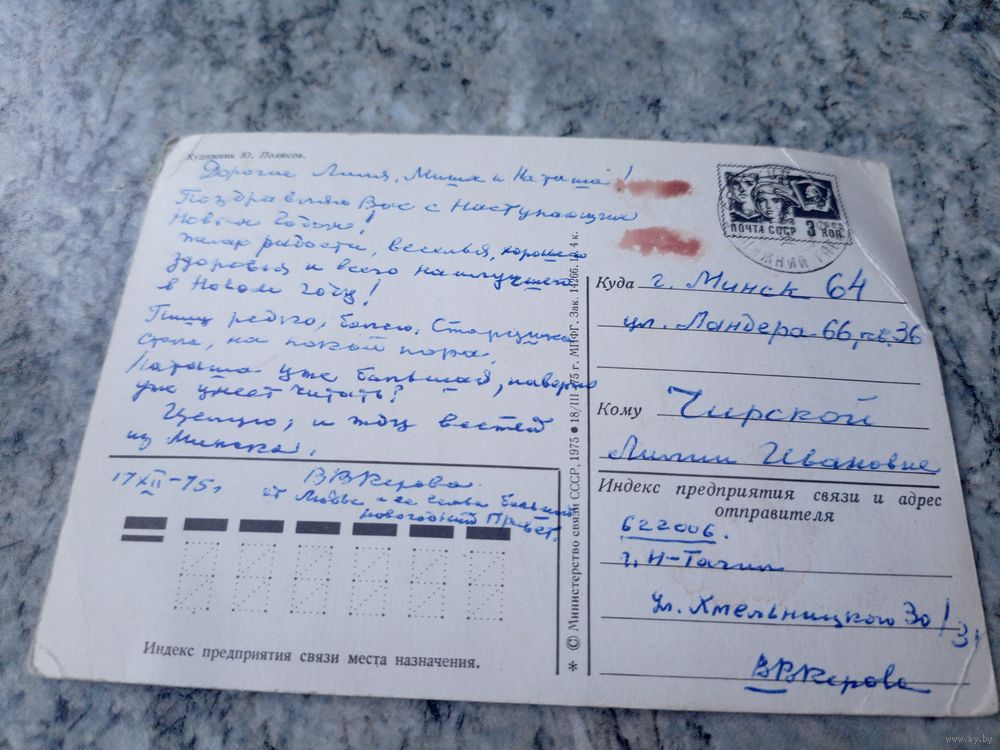 Художник Ю. Поляков.
Дорогие Лилия, Миша и Наташа!
Поздравляю Вас с Наступающим
Новым Годом!
Желаю радости, веселья, хорошего
здоровья и всего наилучшего
в Новом году!
Пишу редко, болею. Старушка
стала, на покой пора.
Наташа уже большая, наверно
уже умеет читать?
Целую, и жду вестей
из Минска.
17 XII-75 г ВВКерова
от Любы и ее семьи большой
новогодний Привет.
Индекс предприятия связи места назначения.
* © Министерство связи СССР, 1975 ● 18/III 75 г. МПФГ. Зак. 14266. Ц. 4 к.
ПОЧТА СССР 3 КОП.
НИЖНИЙ ТАГ
Куда г. Минск 64
ул. Ландера 66, кв. 36
Кому Чирской
Лилии Ивановне
Индекс предприятия связи и адрес
отправителя
622006.
г. Н-Тагил
ул. Хмельницкого 30/31
ВВКерова
www.ay.by